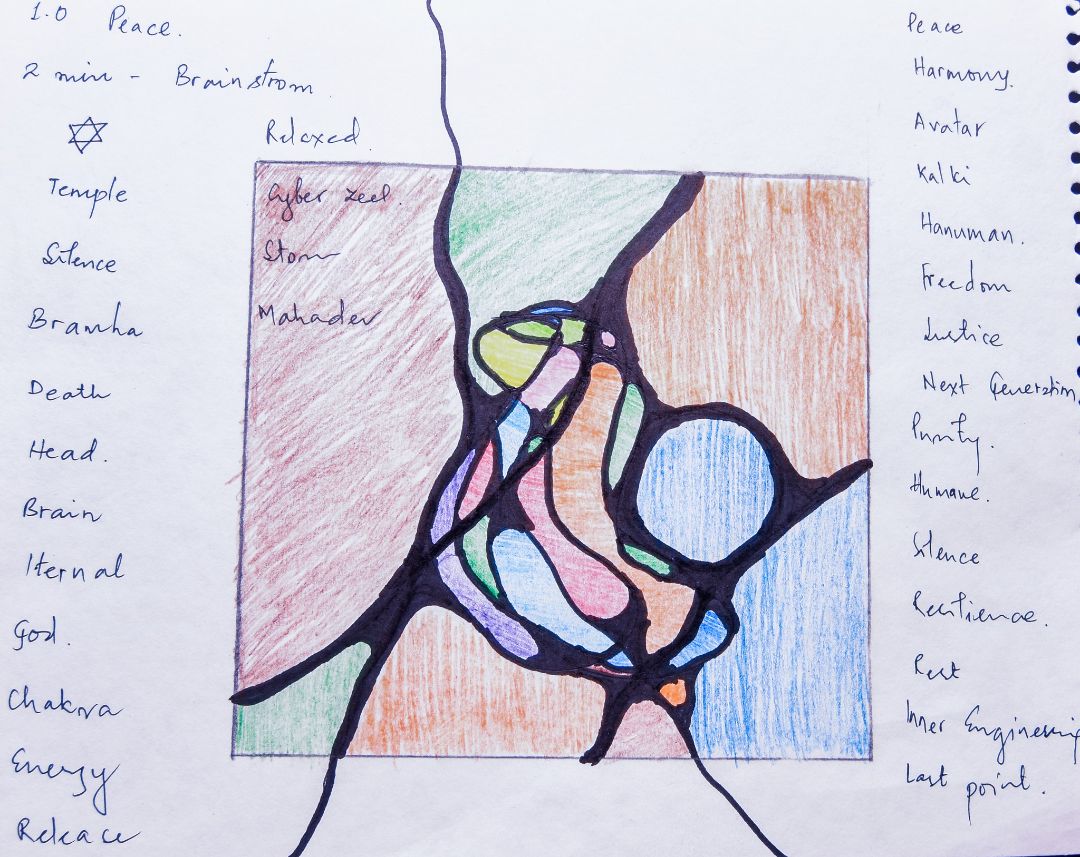 1.0 Peace.
2 min - Brainstrom.
Relaxed.
Temple
Cyber zeel.
Silence
Storm
Bramha
Mahadev
Death
Head.
Brain
Iternal
God.
Chakra
Energy
Releace
Peace
Harmony.
Avatar
Kalki
Hanuman.
Freedom
Justice
Next Generation
Purity.
Humane.
Silence
Resilience.
Rest
Inner Engineering
Last point.